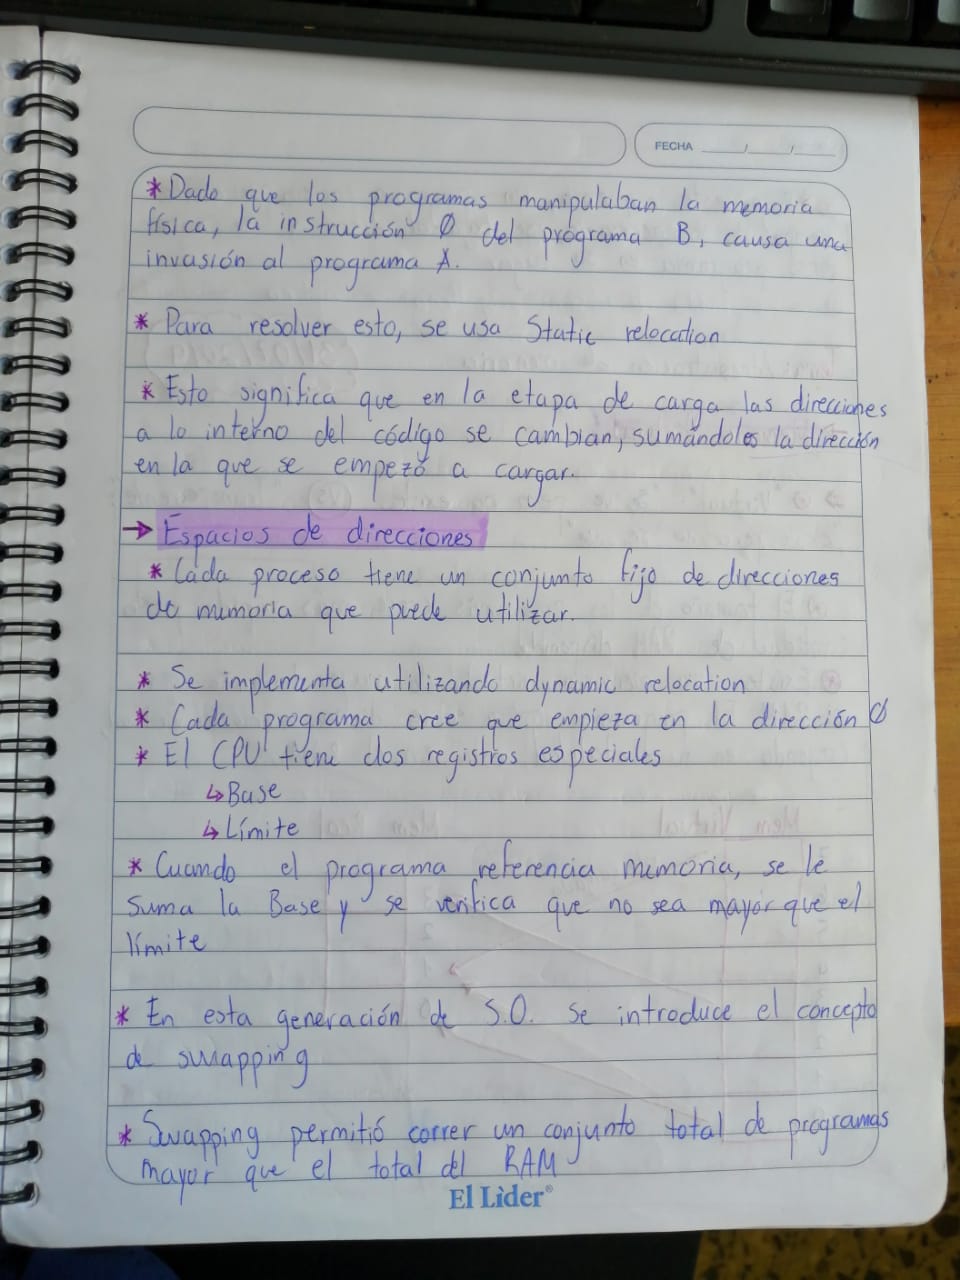 FECHA ___/___/___
* Dado que los programas manipulaban la memoria
física, la instrucción 0 del programa B, causa una
invasión al programa A.
* Para resolver esto, se usa Static relocation
* Esto significa que en la etapa de carga las direcciones
a lo interno del código se cambian, sumándoles la dirección
en la que se empezó a cargar.
→ Espacios de direcciones
* Cada proceso tiene un conjunto fijo de direcciones
de memoria que puede utilizar.
* Se implementa utilizando dynamic relocation
* Cada programa cree que empieza en la dirección 0
* El CPU tiene dos registros especiales
↳ Base
↳ Límite
* Cuando el programa referencia memoria, se le
suma la Base y se verifica que no sea mayor que el
límite
* En esta generación de S.O. se introduce el concepto
de swapping
* Swapping permitió correr un conjunto total de programas
mayor que el total del RAM
El Lìder®